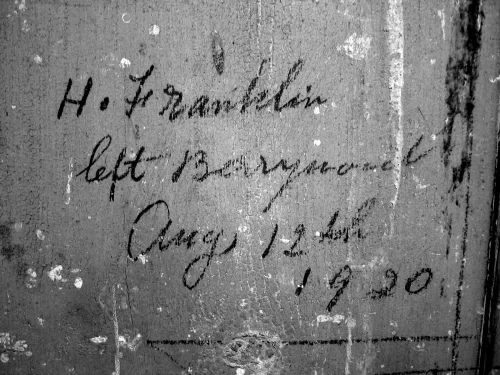 H. Franklin
left Berrymond
Aug, 12th
1920